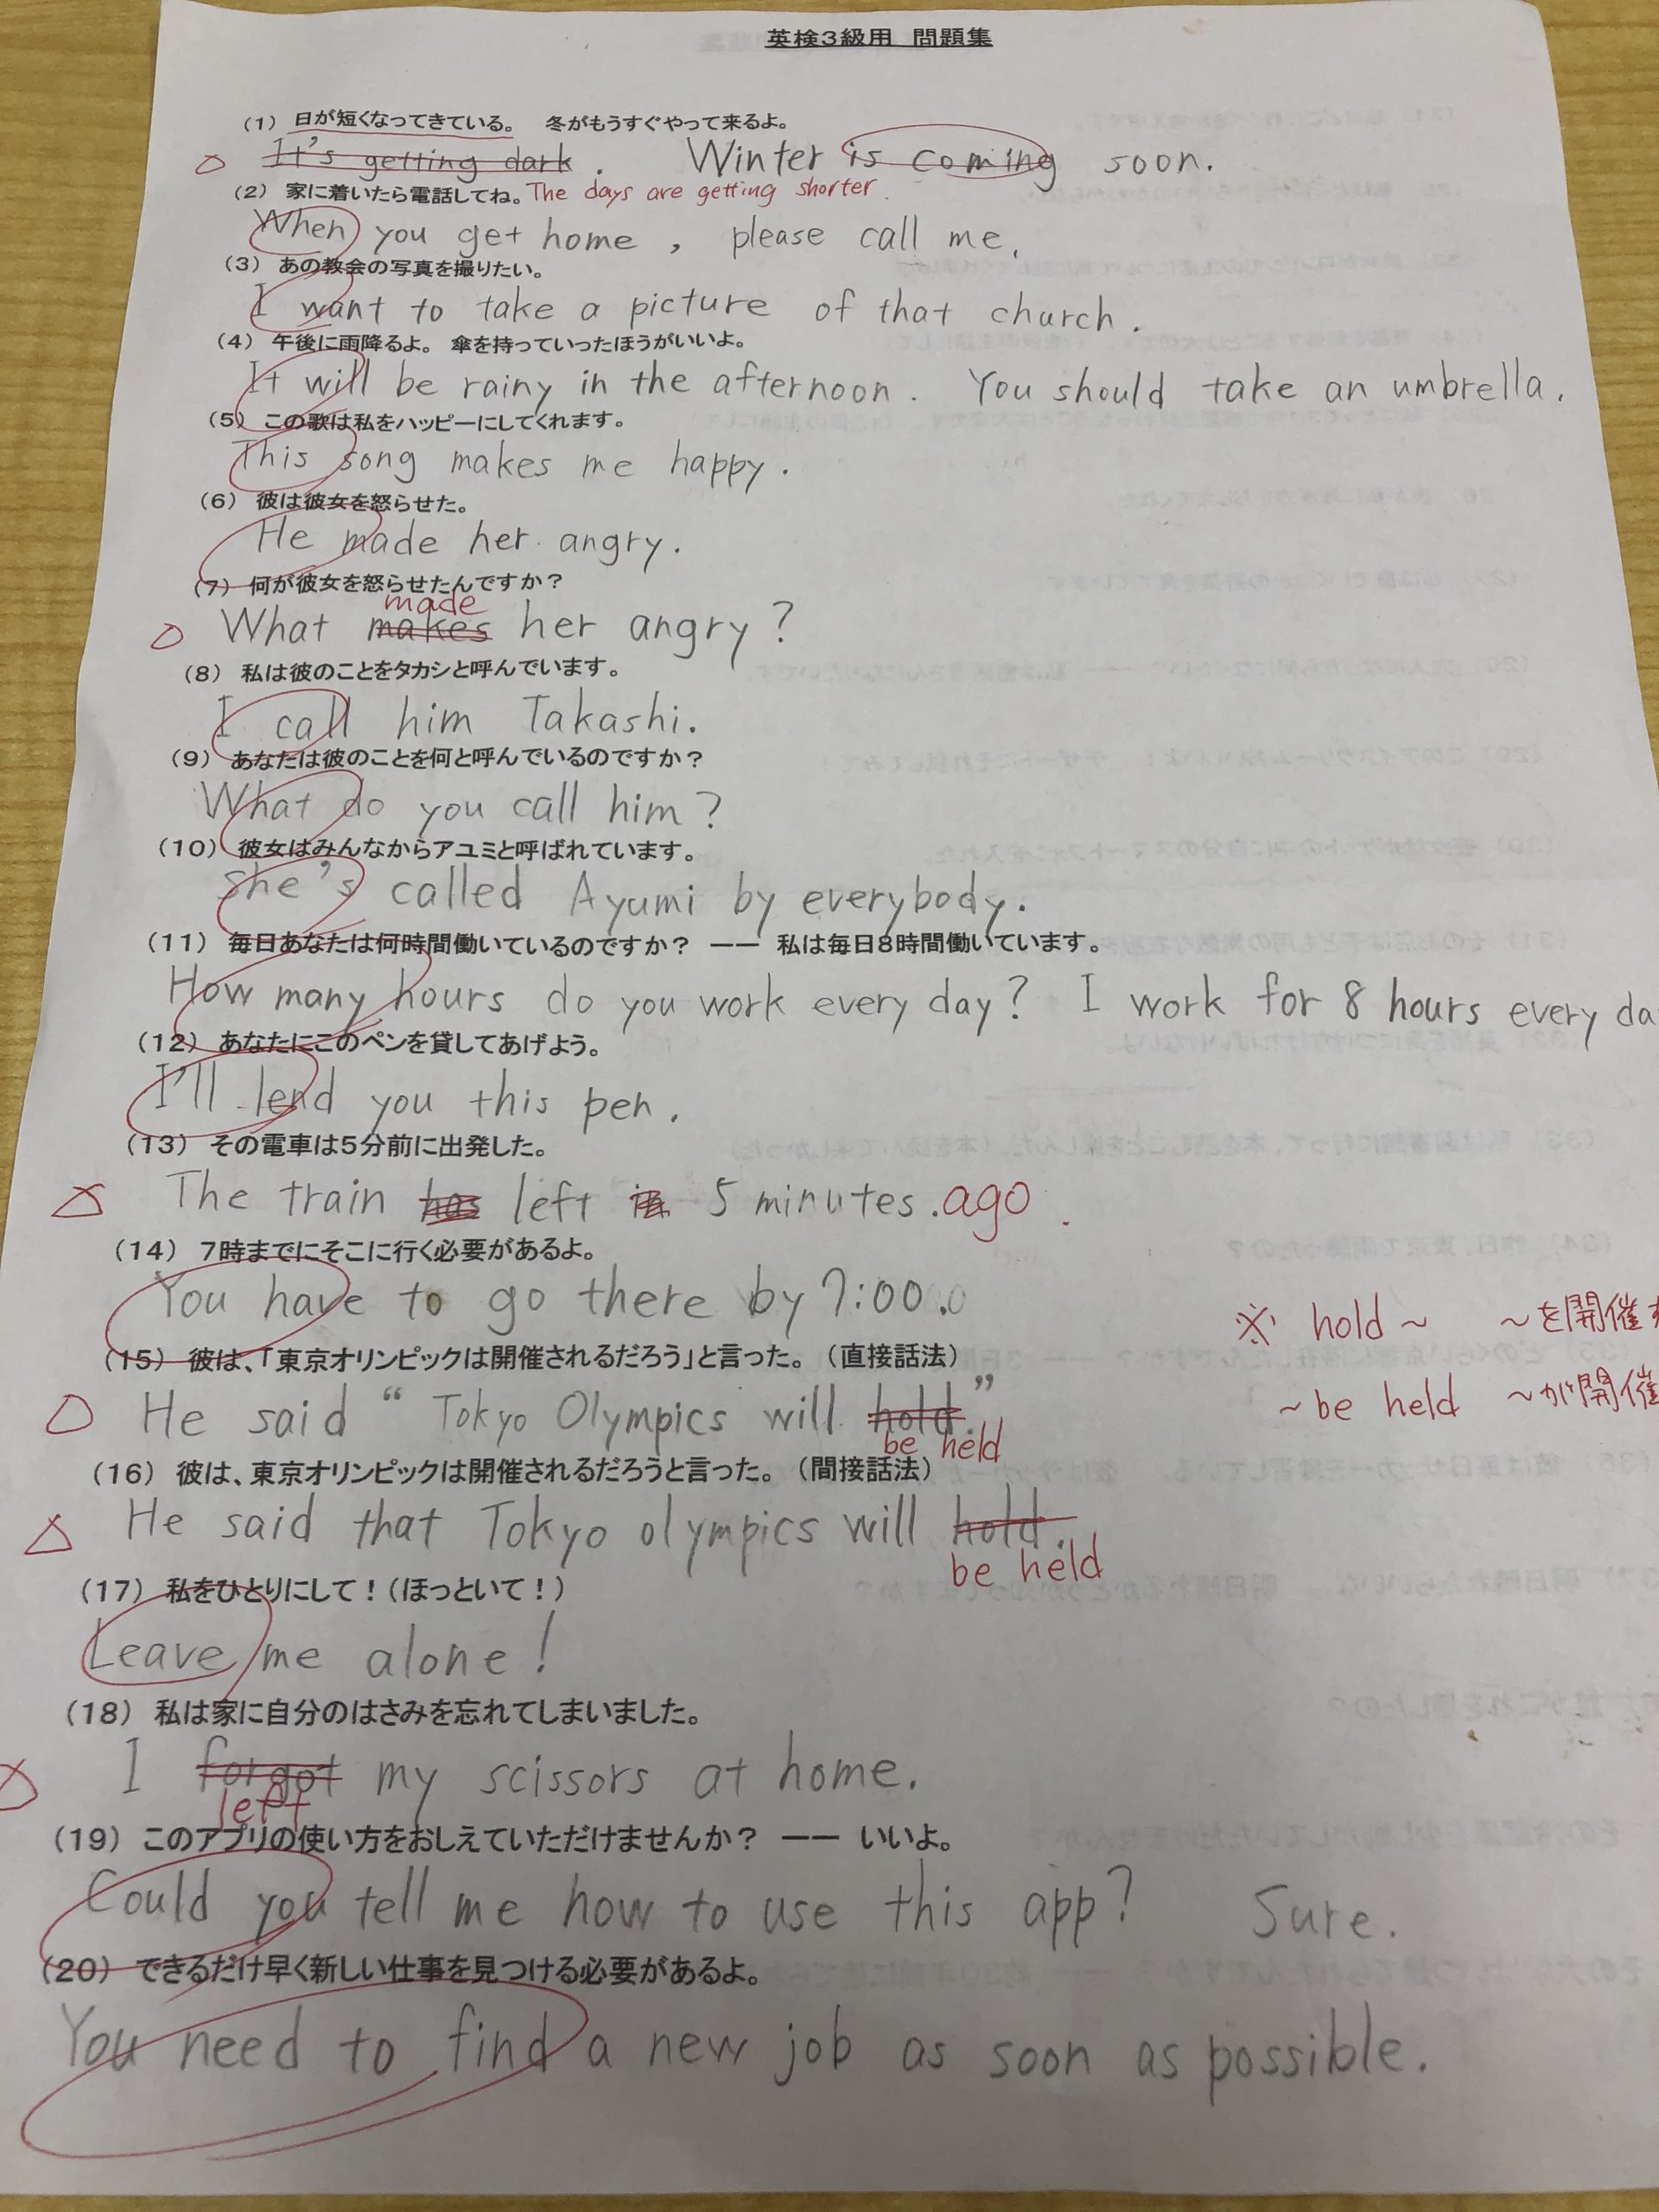 英検3級用 問題集
(1) 日が短くなってきている。 冬がもうすぐやって来るよ。
It's getting dark. Winter is coming soon.
(2) 家に着いたら電話してね。 The days are getting shorter.
When you get home, please call me.
(3) あの教会の写真を撮りたい。
I want to take a picture of that church.
(4) 午後に雨降るよ。 傘を持っていったほうがいいよ。
It will be rainy in the afternoon. You should take an umbrella.
(5) この歌は私をハッピーにしてくれます。
This song makes me happy.
(6) 彼は彼女を怒らせた。
He made her angry.
(7) 何が彼女を怒らせたんですか?
made
What makes her angry?
(8) 私は彼のことをタカシと呼んでいます。
I call him Takashi.
(9) あなたは彼のことを何と呼んでいるのですか?
What do you call him?
(10) 彼女はみんなからアユミと呼ばれています。
She's called Ayumi by everybody.
(11) 毎日あなたは何時間働いているのですか? ―― 私は毎日8時間働いています。
How many hours do you work every day? I work for 8 hours every da
(12) あなたにこのペンを貸してあげよう。
I'll lend you this pen.
(13) その電車は5分前に出発した。
The train has left in 5 minutes. ago.
(14) 7時までにそこに行く必要があるよ。
You have to go there by 7:00.
※ hold ~ ~を開催す
(15) 彼は、「東京オリンピックは開催されるだろう」と言った。 (直接話法)
~ be held ~が開催
He said “ Tokyo Olympics will hold.”
be held
(16) 彼は、東京オリンピックは開催されるだろうと言った。 (間接話法)
He said that Tokyo olympics will hold.
be held
(17) 私をひとりにして!(ほっといて!)
Leave me alone!
(18) 私は家に自分のはさみを忘れてしまいました。
I forgot my scissors at home.
left
(19) このアプリの使い方をおしえていただけませんか? ―― いいよ。
Could you tell me how to use this app? Sure.
(20) できるだけ早く新しい仕事を見つける必要があるよ。
You need to find a new job as soon as possible.